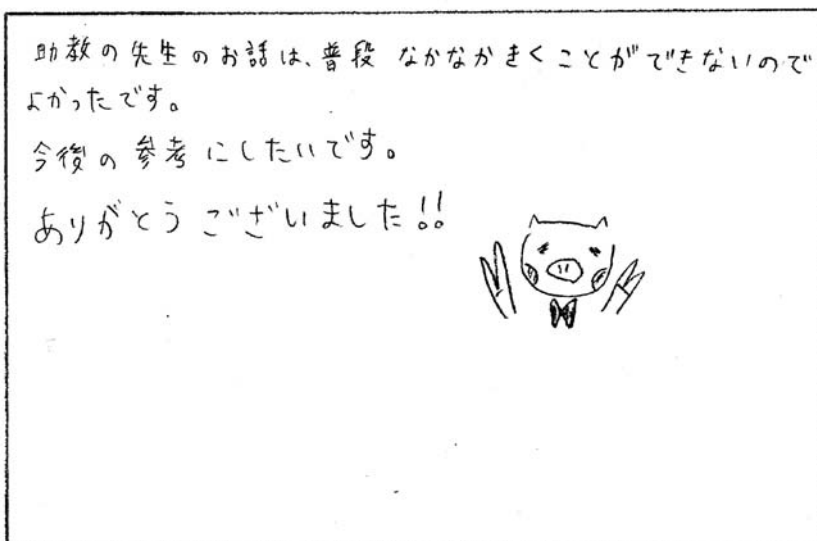 助教の先生のお話は、普段 なかなかきくことができないので
よかったです。
今後の参考にしたいです。
ありがとうございました!!